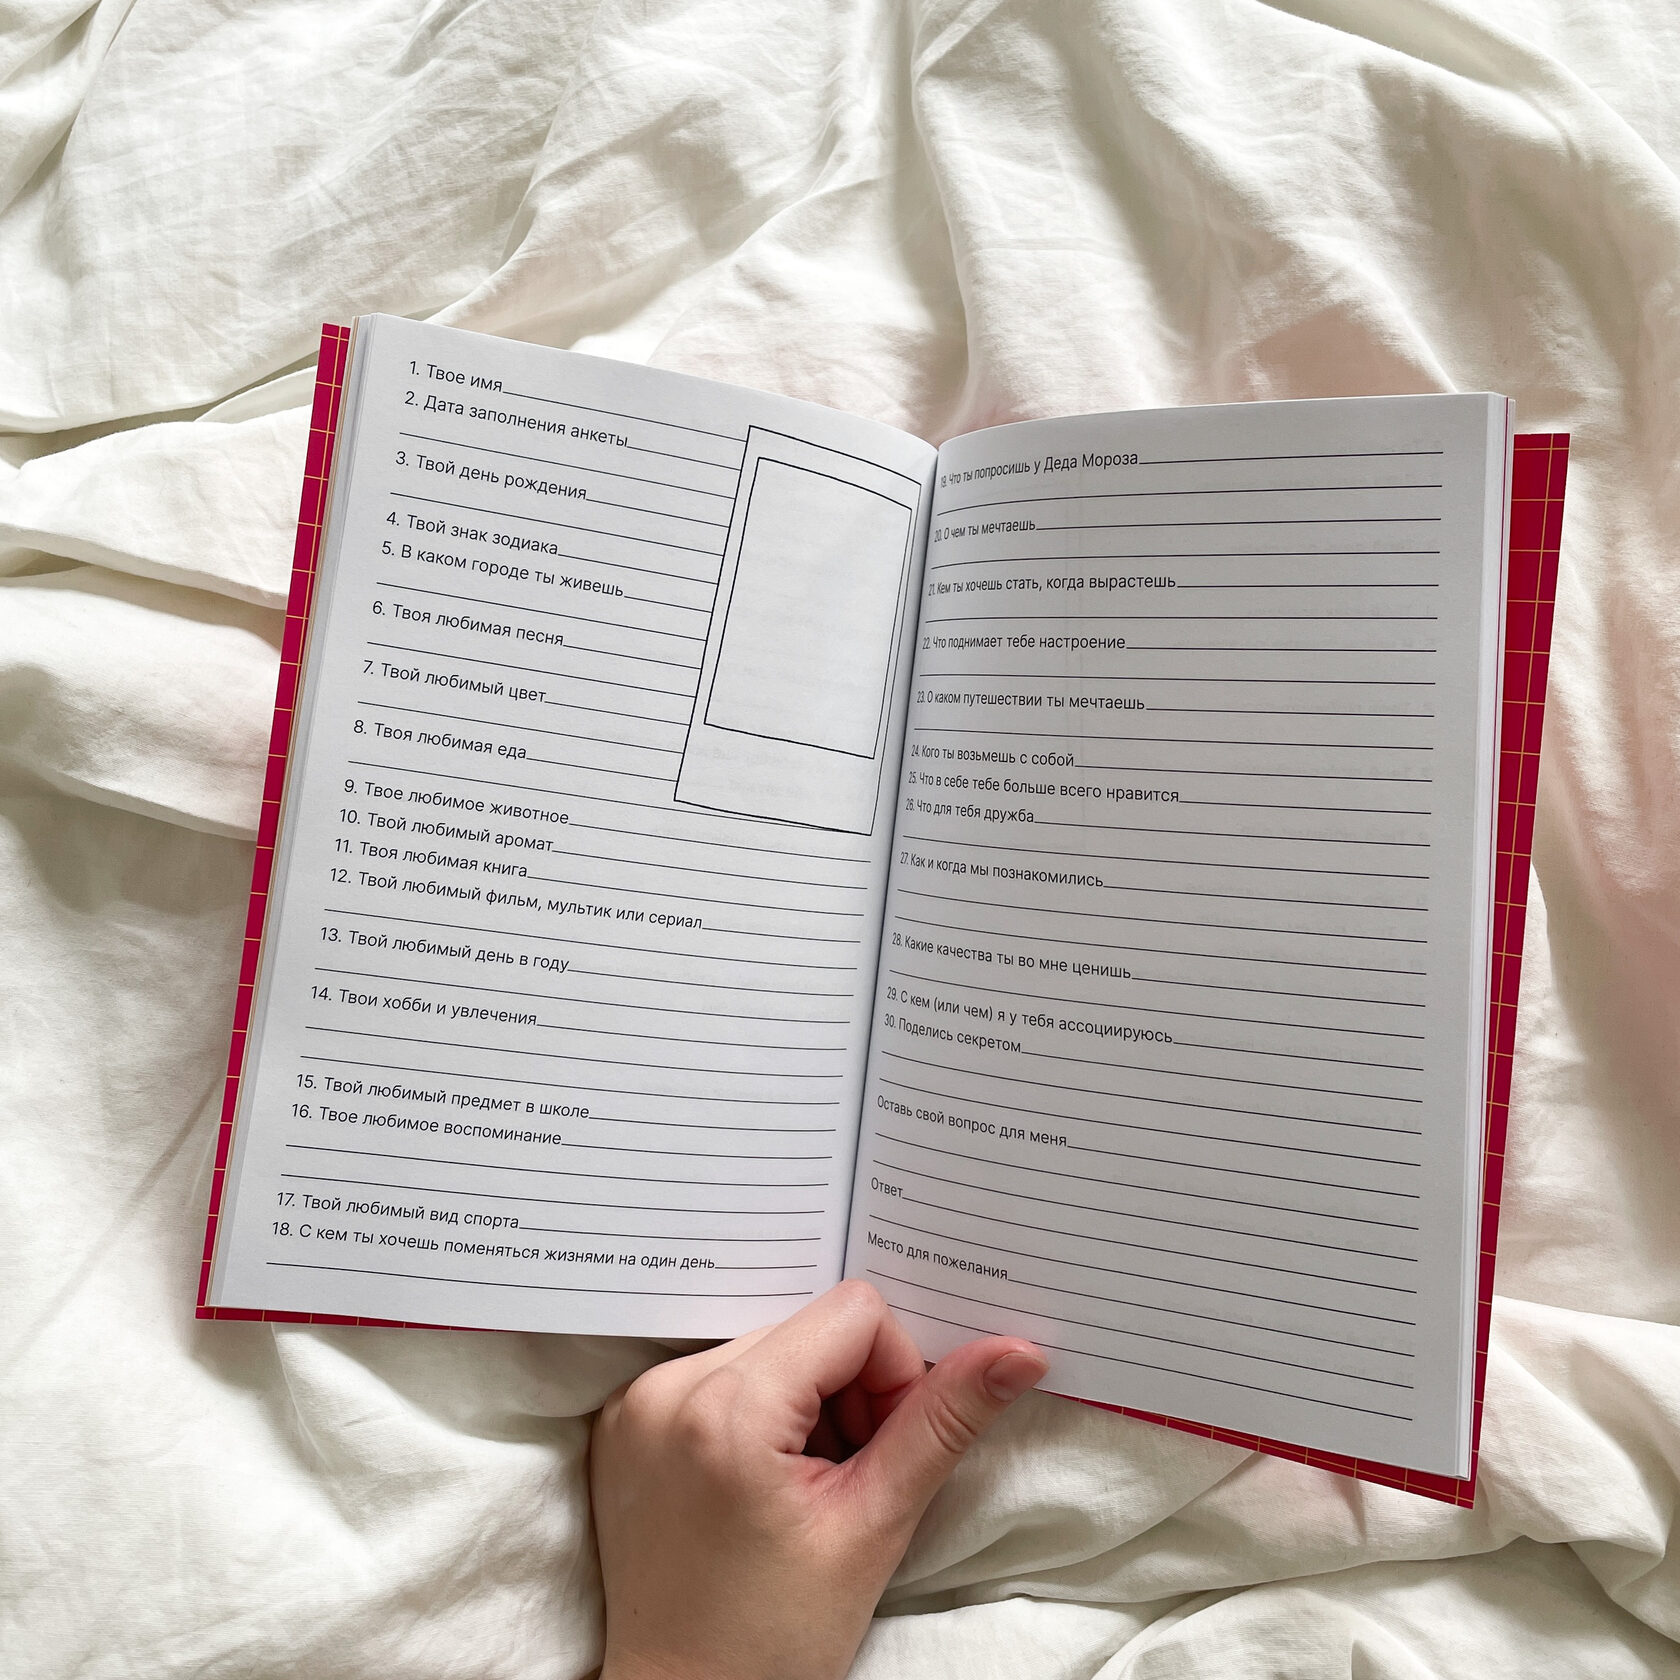 1. Твое имя
2. Дата заполнения анкеты
3. Твой день рождения
4. Твой знак зодиака
5. В каком городе ты живешь
6. Твоя любимая песня
7. Твой любимый цвет
8. Твоя любимая еда
9. Твое любимое животное
10. Твой любимый аромат
11. Твоя любимая книга
12. Твой любимый фильм, мультик или сериал
13. Твой любимый день в году
14. Твои хобби и увлечения
15. Твой любимый предмет в школе
16. Твое любимое воспоминание
17. Твой любимый вид спорта
18. С кем ты хочешь поменяться жизнями на один день
19. Что ты попросишь у Деда Мороза
20. О чем ты мечтаешь
21. Кем ты хочешь стать, когда вырастешь
22. Что поднимает тебе настроение
23. О каком путешествии ты мечтаешь
24. Кого ты возьмешь с собой
25. Что в себе тебе больше всего нравится
26. Что для тебя дружба
27. Как и когда мы познакомились
28. Какие качества ты во мне ценишь
29. С кем (или чем) я у тебя ассоциируюсь
30. Поделись секретом
Оставь свой вопрос для меня
Ответ
Место для пожелания